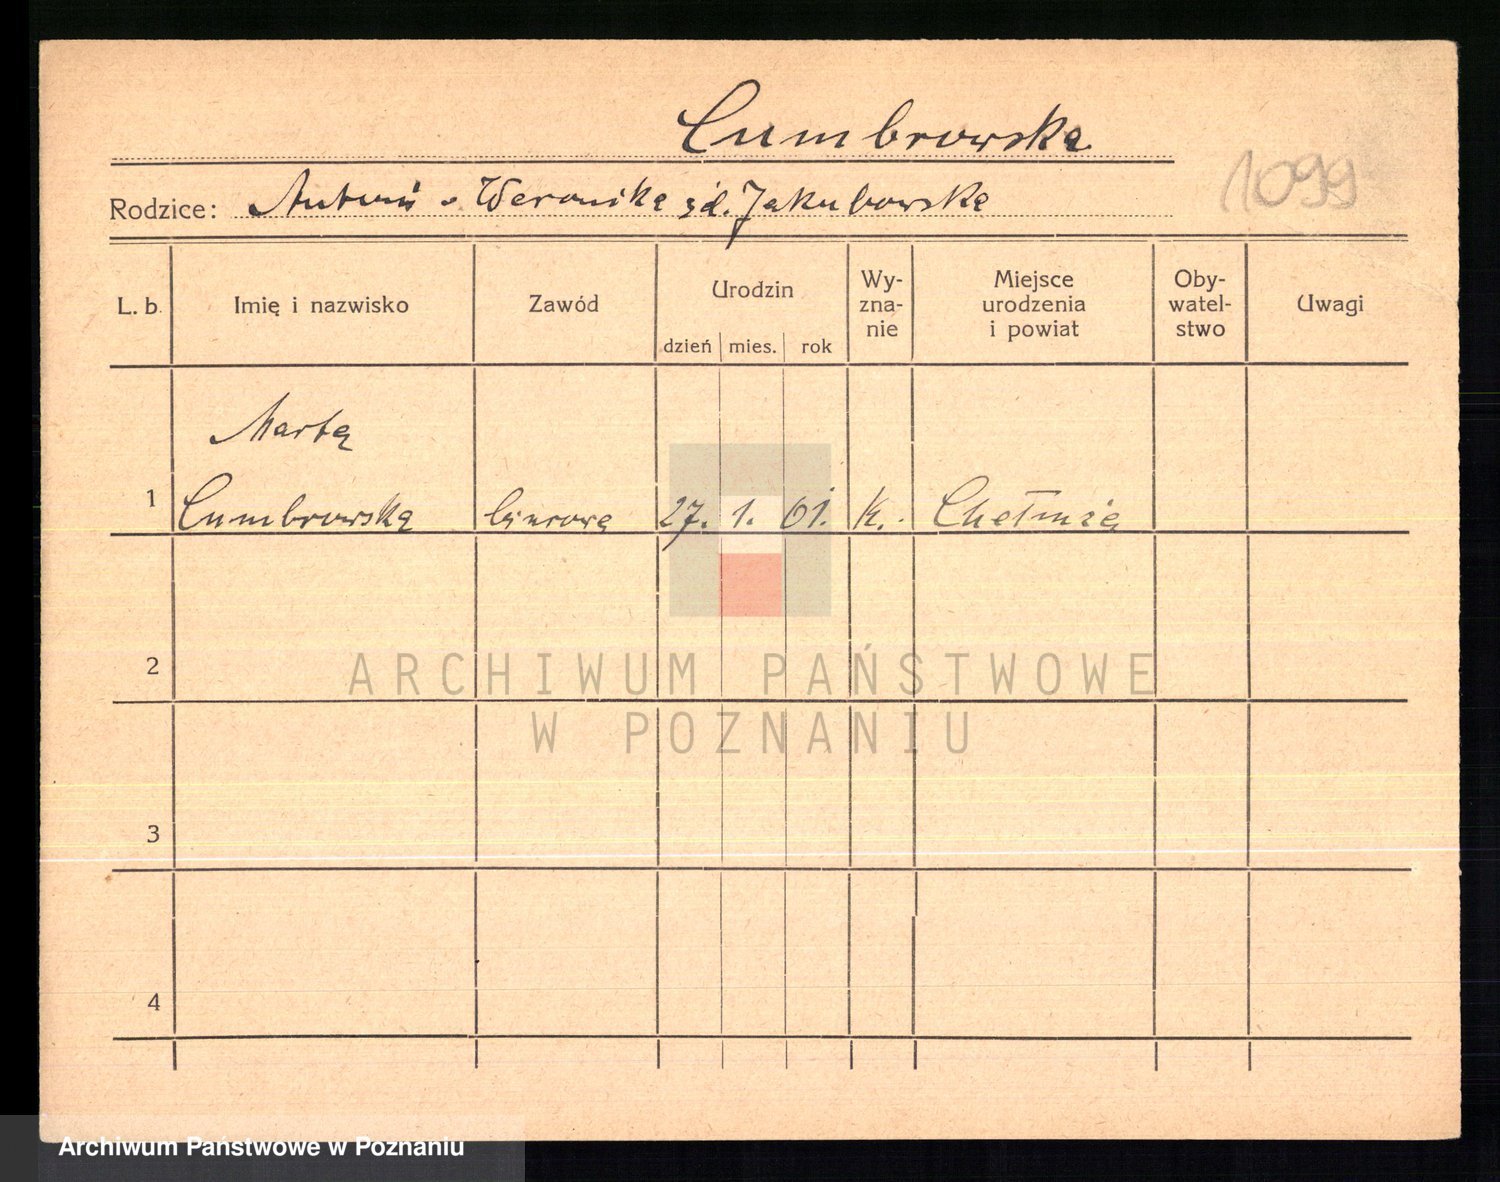 Cumbrowska
1099
Rodzice: Antoni i Weronika zd. Jakubowska
L. b. Imię i nazwisko Zawód Urodzin dzień mies. rok Wy-zna-nie Miejsce urodzenia i powiat Oby-watel-stwo Uwagi
Marta
1 Cumbrowska biurowa 27. 1. 01. k. Chełmża
2
ARCHIWUM PAŃSTWOWE
W POZNANIU
3
4
Archiwum Państwowe w Poznaniu